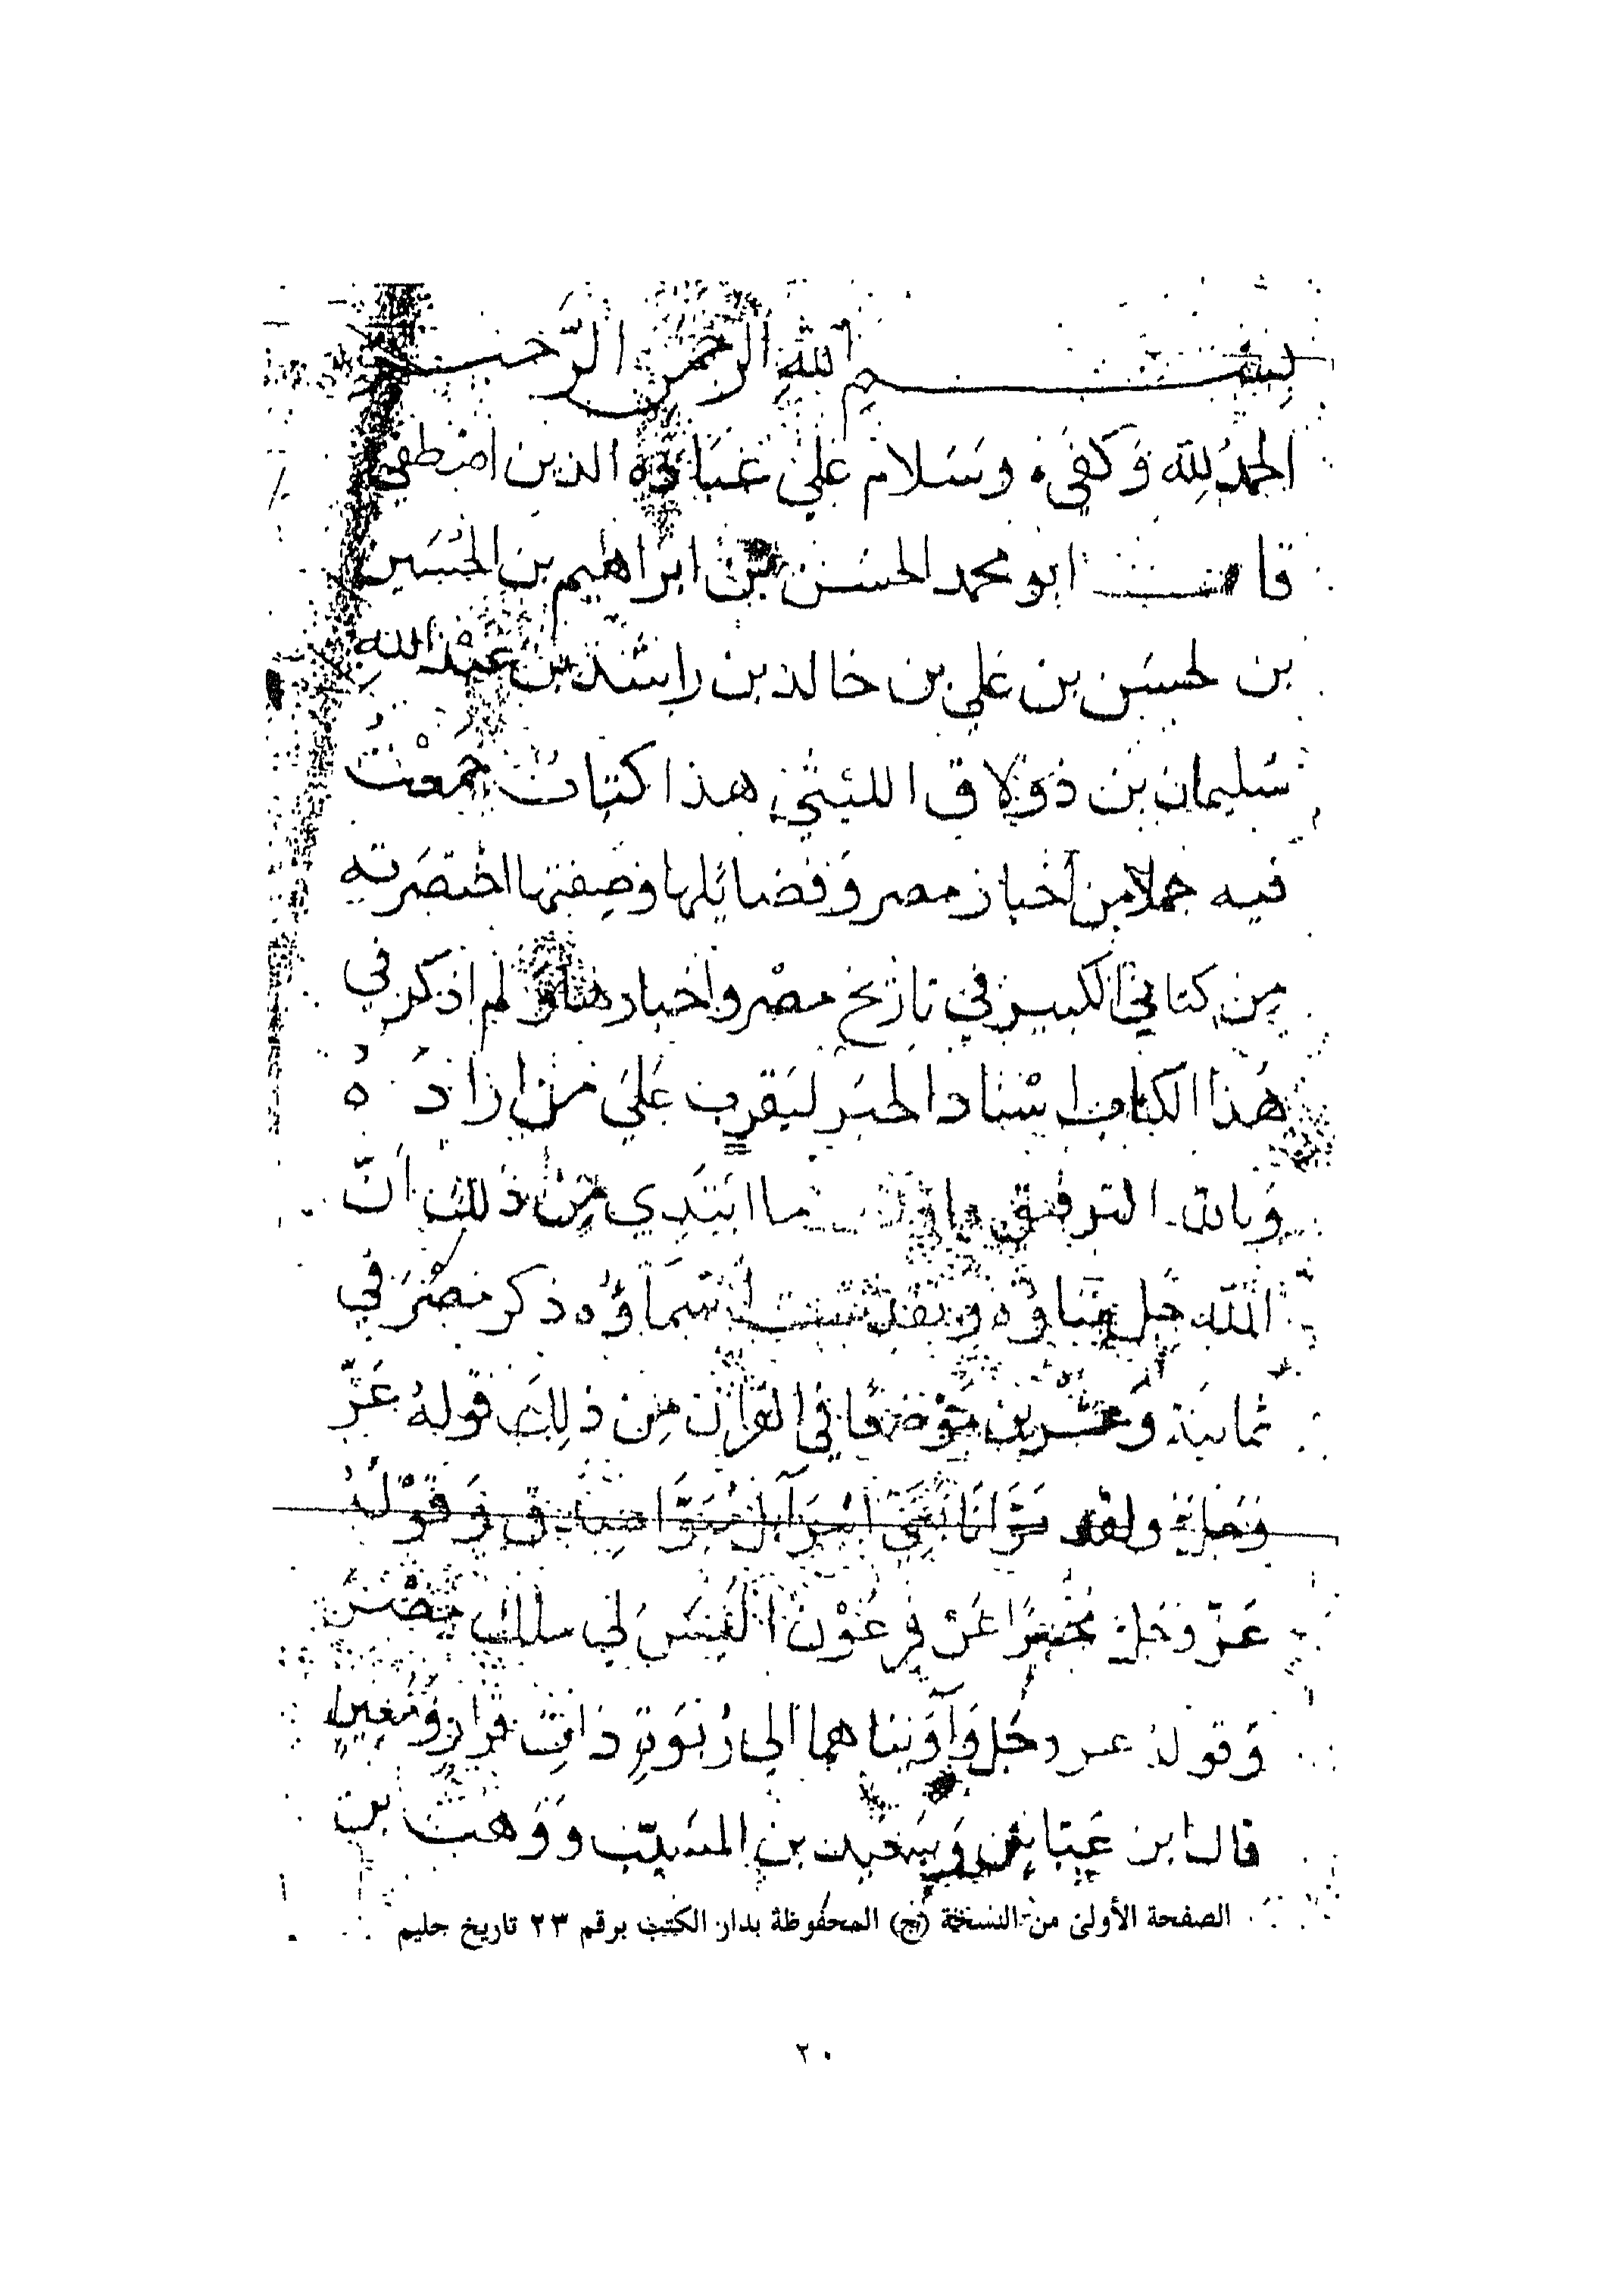 بسم الله الرحمن الرحيم
الحمد لله وكفى وسلام على عباده الذين اصطفى
قال ابو محمد الحسن بن ابراهيم بن الحسين
بن لحسن بن علي بن خالد بن راشد بن عبد الله
سليمان بن زولاق الليثي هذا كتاب جمعت
فيه جملا من أخبار مصر وفضايلها وصفتها اختصرته
من كتابي الكبير في تاريخ مصر واخبارها ولم اذكر في
هذا الكتاب اسناد الخبر ليقرب على من اراده
وبالله التوفيق ما ابتدي من ذلك ان
الله جل ثناؤه وتقدست أسماؤه ذكر مصر في
ثمانية وعشرين موضعا في القران من ذلك قوله عز
وجل ولقد بوانا بني اسرآيل مبوا صدق وقوله
عز وجل مخبرا عن فرعون اليس لي ملك مصر
وقوله عز وجل وآويناهما الى ربوة ذات قرار ومعين
قال ابن عباس وسعيد بن المسيب ووهب بن
الصفحة الأولى من النسخة (ج) المحفوظة بدار الكتب برقم ٢٣ تاريخ حليم
٢٠